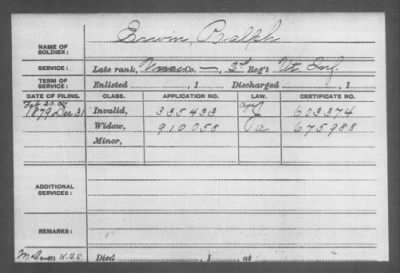 NAME OF SOLDIER: Erwin, Ralph
SERVICE: Late rank, Co. —, 2d Reg't Vt. Inf.
TERM OF SERVICE: Enlisted , 1 Discharged , 1
DATE OF FILING. CLASS. APPLICATION NO. LAW. CERTIFICATE NO.
1879 Dec 31 Invalid, 335433 603374
Widow, 910058 675988
Minor,
ADDITIONAL SERVICES:
REMARKS:
Died , 1 , at